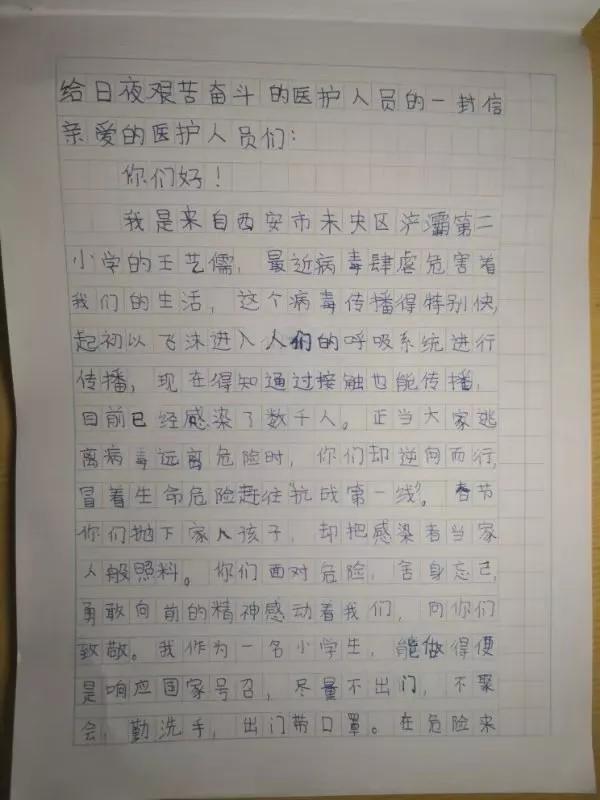 给日夜艰苦奋斗的医护人员的一封信
亲爱的医护人员们：
你们好！
我是来自西安市未央区浐灞第二
小学的王艺儒，最近病毒肆虐危害着
我们的生活，这个病毒传播得特别快，
起初以飞沫进入人们的呼吸系统进行
传播，现在得知通过接触也能传播，
目前已经感染了数千人。正当大家逃
离病毒远离危险时，你们却逆向而行，
冒着生命危险赶往“抗战第一线”。春节
你们抛下家人孩子，却把感染者当家
人般照料。你们面对危险，舍身忘己，
勇敢向前的精神感动着我们，向你们
致敬。我作为一名小学生，能做得便
是响应国家号召，尽量不出门，不聚
会，勤洗手，出门带口罩。在危险来